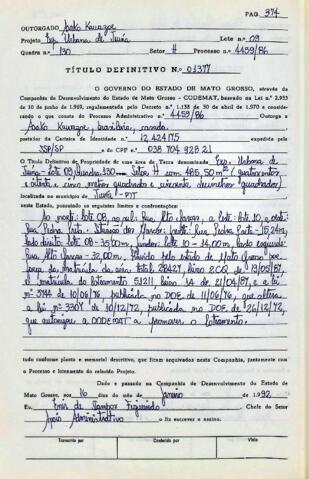 PAG 374
OUTORGADO Asako Kawazoe
Projeto Exp. Urbana de Juína Lote n.º 09
Quadra n.º 130 Setor H Processo n.º 4459/86
TÍTULO DEFINITIVO N.º 01377
O GOVERNO DO ESTADO DE MATO GROSSO, através da
Companhia de Desenvolvimento do Estado de Mato Grosso - CODEMAT, baseado na Lei n.º 2.935
de 10 de junho de 1969, regulamentada pelo Decreto n.º 1.138 de 30 de abril de 1970 e considerando
o que consta do Processo Administrativo n.º 4459/86 Outorga a
Asako Kawazoe, brasileira, casada,
portador da Carteira de Identidade n.º 12.424.175 expedida pela
SSP/SP e do CPF n.º 038 704 928 21
O Título Definitivo de Propriedade de uma área de Terra denominada Exp. Urbana de
Juína - Lote 09, Quadra 130 - Setor H com 485,50 m² (quatrocentos
e oitenta e cinco metros quadrados e cinquenta decímetros quadrados)
localizada no Município de Juína - MT
neste Estado, possuindo os seguintes limites e confrontações:
Ao norte: lote 08, ao sul: Rua Alto Garças, a leste: lote 10, a oeste:
Rua Pedra Preta. frente: Rua Pedra Preta - 15,24m,
lado direito: lote 08 - 35,00m, fundos: lote 10 - 14,00m, lado esquerdo:
Rua Alto Garças - 32,00m,
da matrícula da área total 28427, livro 2CG, de 13/05/87,
e matrícula do loteamento 51211, livro de 21/04/87, e a lei
nº 3744 de 10/06/76 publicada no DOE de 11/06/76, que altera
a lei nº 3307 de 10/12/72, publicada no DOE de 26/12/72,
que autoriza a CODEMAT a promover o loteamento.
tudo conforme planta e memorial descritivo, que ficam arquivados nesta Companhia, juntamente com
o Processo e Intomento do referido Projeto.
Dado e passado na Companhia de Desenvolvimento do Estado de
Mato Grosso, aos 16 dias do mes de janeiro de 1.992
Eu, Chefe do Setor
Apoio Administrativo o fiz escrever e assino.
Transcrito por
Conferido por
Visto